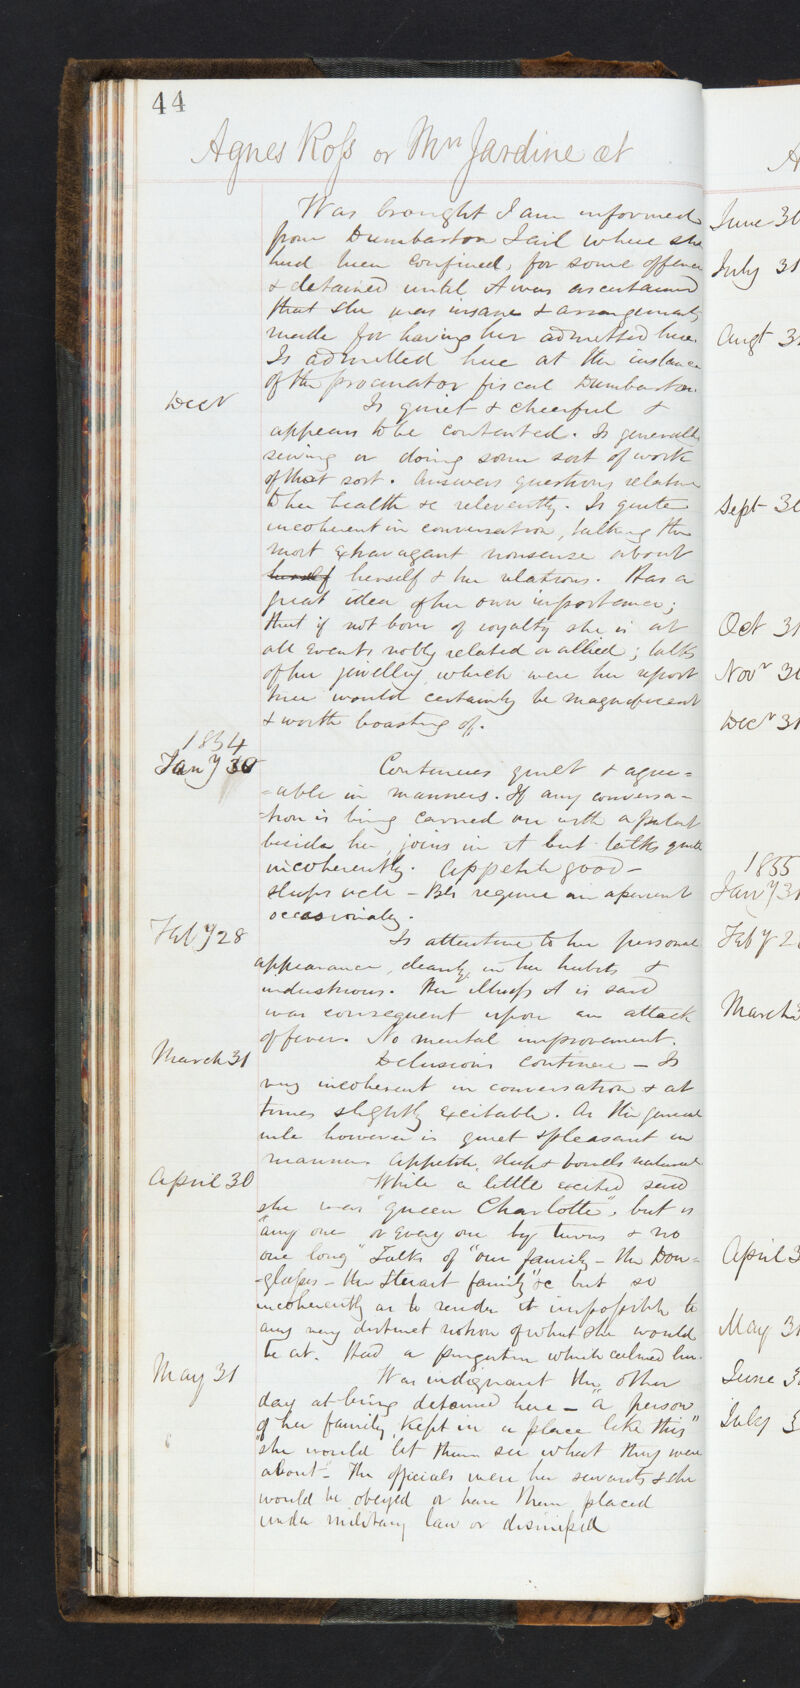 44
Agnes Ross or Mrs Jardine æt
Was brought I am informed
from Dumbarton Jail where she
had been confined, for some offence
& detained until it was ascertained
that she was insane & arrangements
made for having her admitted here.
Is admitted here at the instance
of the procurator fiscal Dumbarton.
Decr Is quiet & cheerful &
appears to be contented. Is generally
sewing or doing some sort of work
of that sort. Answers questions relative
to her health &c relevantly. Is quite
incoherent in conversation, talking the
most extravagant nonsense about
herself herself & her relations. Has a
great idea of her own importance;
that if not born of royalty she is at
all events nobly related or allied; talks
of her jewellery which were her report
true would certainly be magnificent
& worth boasting of.
1854
Jany 30 Continues quiet & agree=
=able in manners. If any conversa-
-tion is being carried on with a patient
beside her, joins in it but talks quite
incoherently. Appetite good –
sleeps well – Bls require an aperient
occasionally.
Feby 28 Is attentive to her personal
appearance, cleanly in her habits &
industrious. Her illness it is said
was consequent upon an attack
of fever. No mental improvement.
March 31 Delusions continue – Is
very incoherent in conversation & at
times slightly excitable. As the general
rule however is quiet & pleasant in
manner. Appetite, sleep & bowels natural
April 30 While a little excited said
she was "queen Charlotte", but is
"any one or every one by turns & no
one long" Talks of "our family – the Dou=
-glasses – the Stewart family" &c but so
incoherently as to render it impossible to
any very distinct notion of what she would
be at. Had a purgative which calmed her.
May 31 Was indignant the other
day at being detained here – "a person
of her family kept in a place like this"
she would let them see what they were
about – The officials were her servants & she
would be obeyed or have them placed
under military law or dismissed
A
June 30
July 31
Augt 31
Sept 30
Oct 31
Novr 30
Decr 31
1855
Jany 31
Feby 28
March 3
April 3
May 31
June 3
July 3